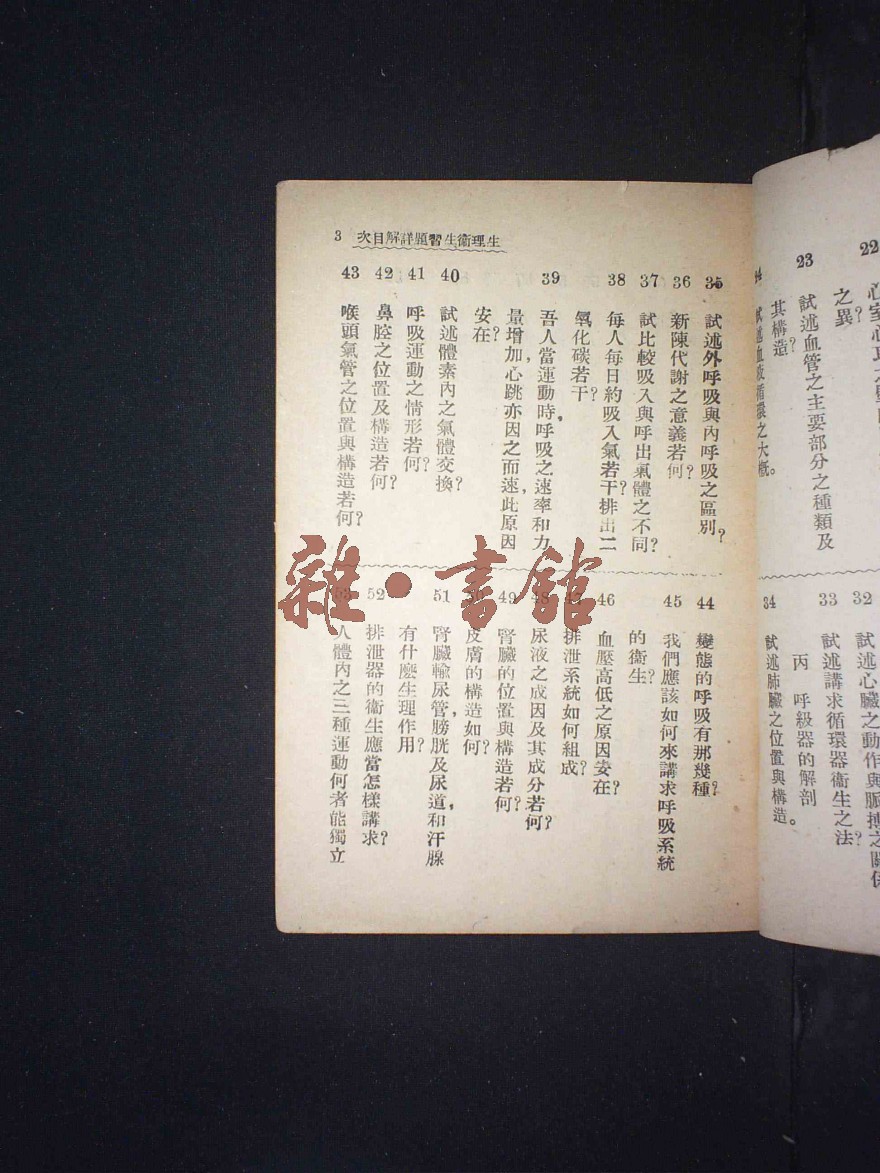 22
之異?
23
試述血管之主要部分之種類及
其構造?
試述血液循環之大概。
32
試述心臟之動作與脈搏之關係?
33
試述講求循環器衞生之法
丙 呼級器的解剖
34
試述肺臟之位置與構造。
生理衞生習題詳解目次
3
35
試述外呼吸與內呼吸之區別?
36
新陳代謝之意義若何?
37
試比較吸入與呼出氣體之不同?
38
每人每日約吸入氣若干?排出二
氧化碳若干?
39
吾人當運動時,呼吸之速率和力
量增加,心跳亦因之而速,此原因
安在?
40
試述體素內之氣體交換?
41
呼吸運動之情形若何?
42
鼻腔之位置及構造若何?
43
喉頭氣管之位置與構造若何?
44
變態的呼吸有那幾種?
45
我們應該如何來講求呼吸系統
的衞生?
46
血壓高低之原因安在?
47
排泄系統如何組成?
48
尿液之成因及其成分若何?
49
腎臟的位置與構造若何?
50
皮膚的構造如何?
51
腎臟,輸尿管,膀胱及尿道,和汗腺
有什麼生理作用?
52
排泄器的衞生應當怎樣講求?
53
人體內之三種運動何者能獨立
雜·書館